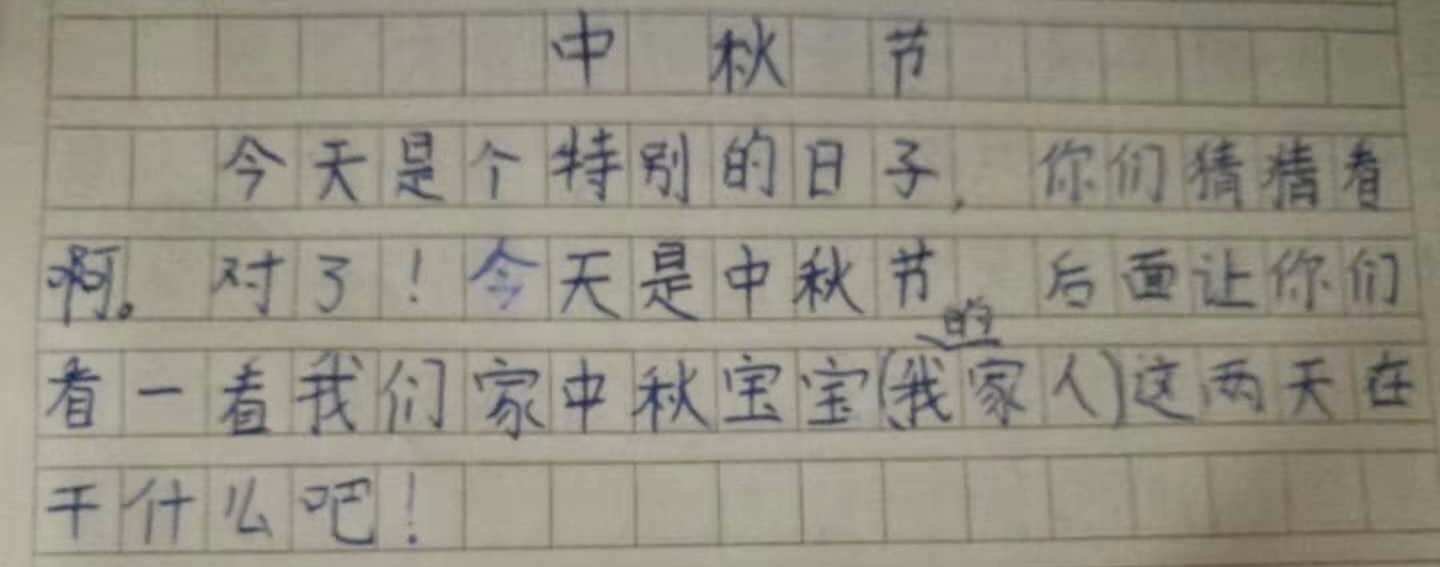 中秋节
今天是个特别的日子,你们猜猜看
啊。对了!今天是中秋节,后面让你们
的
看一看我们家中秋宝宝(我家人)这两天在
干什么吧!